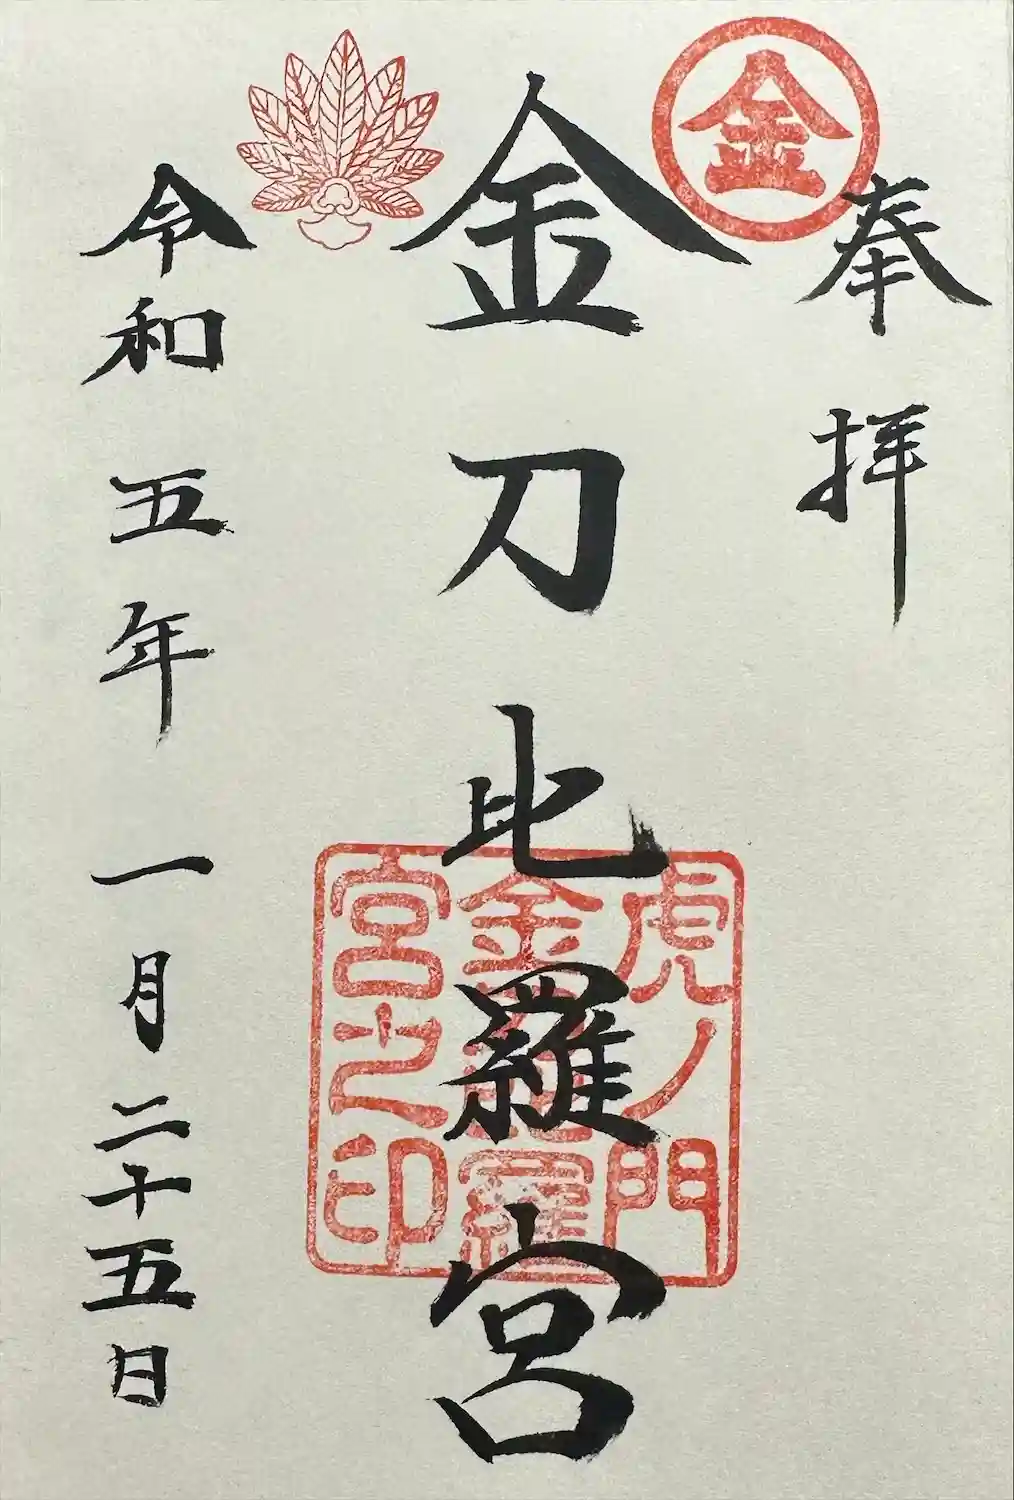 奉拝
金
金刀比羅宮
虎ノ門
金刀比羅
宮之印
令和五年一月二十五日